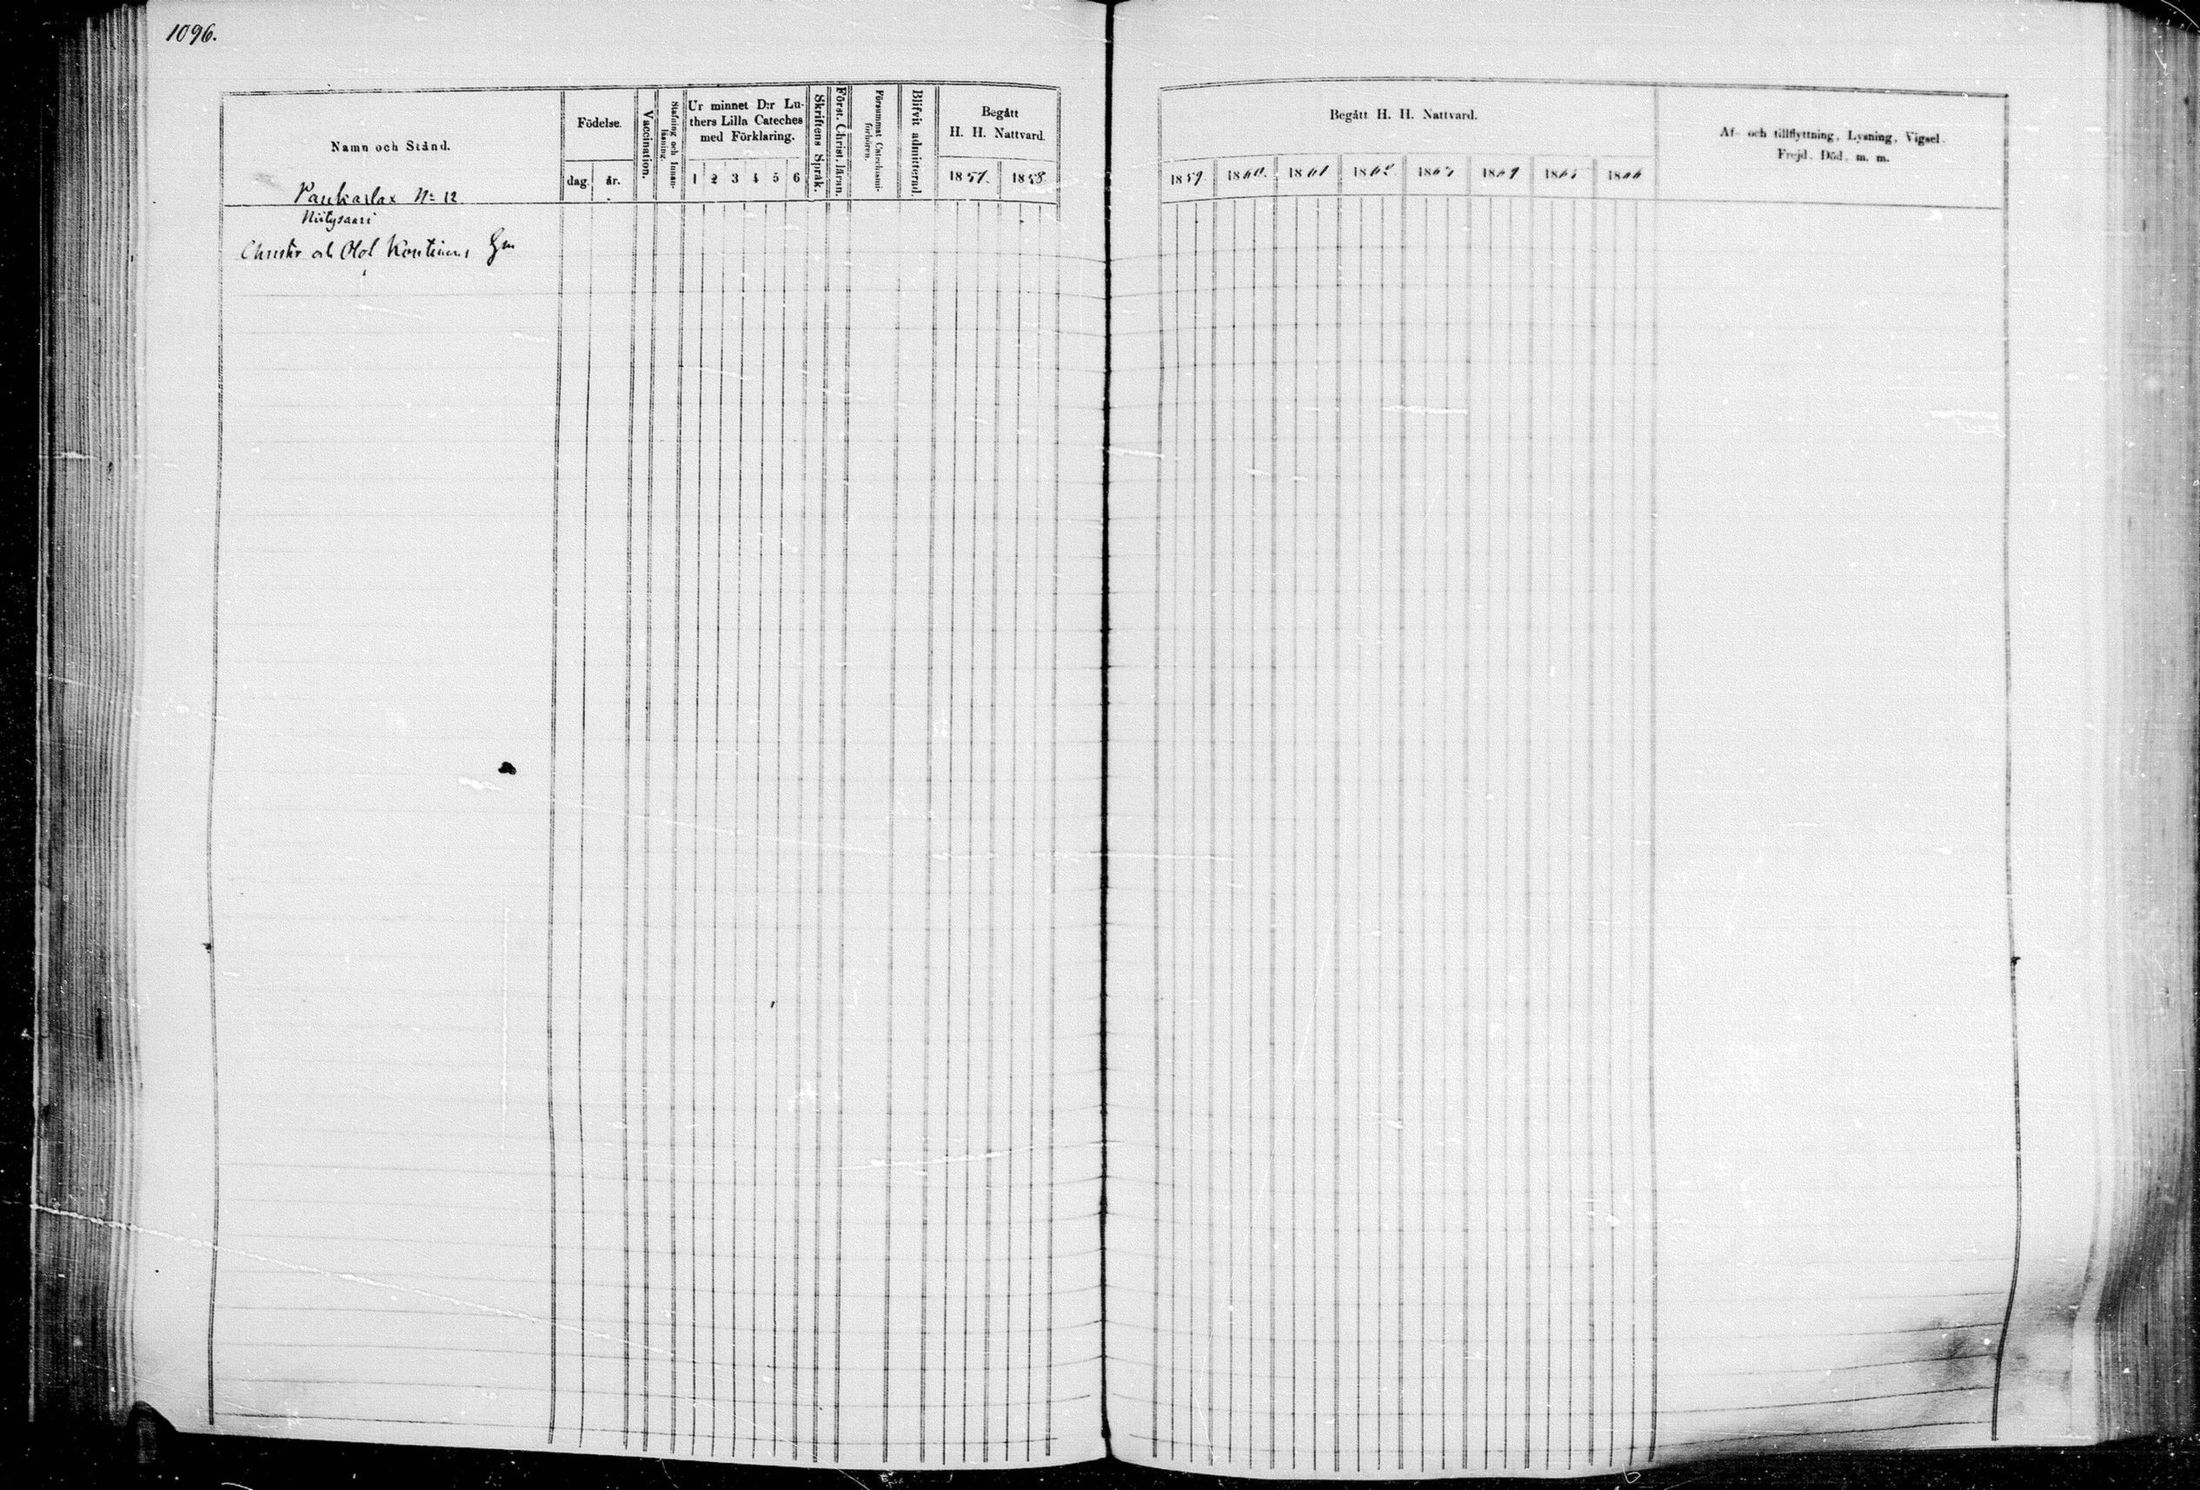 1096.
Namn och Stånd.
Födelse.
dag.
år.
Vaccination.
Stafning och Innan-
läsning.
Ur minnet D:r Lu-
thers Lilla Cateches
med Förklaring.
1 2 3 4 5 6
Skriftens Språk.
Först. Christ. läran.
Försummat Catechismi-
förhören.
Blifvit admitterad.
Begått
H. H. Nattvard.
1857. 1858.
Begått H. H. Nattvard.
1859. 1860. 1861 1862. 1863 1864 1865 1866
Af- och tillflyttning, Lysning, Vigsel.
Frejd. Död. m. m.
Pankarlax No 12
Niitysaari
Christer och Olof Gm